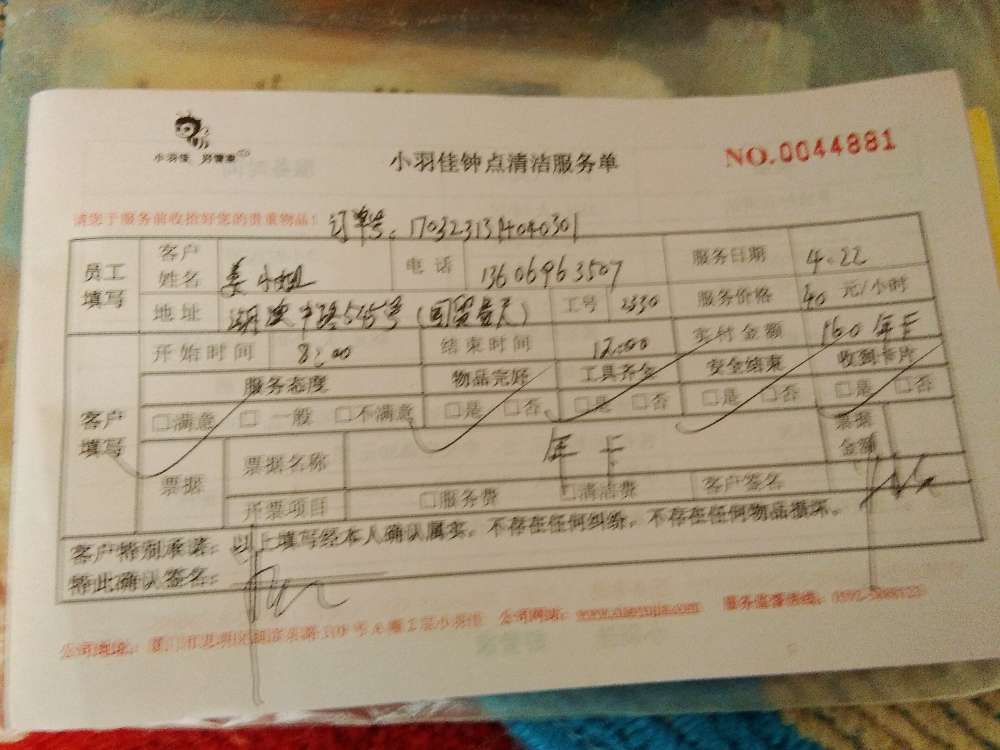 小羽佳 好管家
小羽佳钟点清洁服务单
NO.0044881
请您于服务前收拾好您的贵重物品!
订单号:1703231314040301
员工填写 客户姓名 姜小姐 电话 13606963507 服务日期 4.22
地址 湖滨中路545号(国贸蓝天) 工号 2330 服务价格 40 元/小时
开始时间 8:00 结束时间 12:00 实付金额 160 年卡
客户填写 服务态度 物品完好 工具齐全 安全结束 收到卡片
□满意 □一般 □不满意 □是 □否 □是 □否 □是 □否 □是 □否
票据 票据名称 年卡 票据金额
开票项目 □服务费 □清洁费 客户签名
客户特别承诺:以上填写经本人确认属实,不存在任何纠纷,不存在任何物品损坏。
特此确认签名:
公司地址: 公司网站: 服务监督热线: